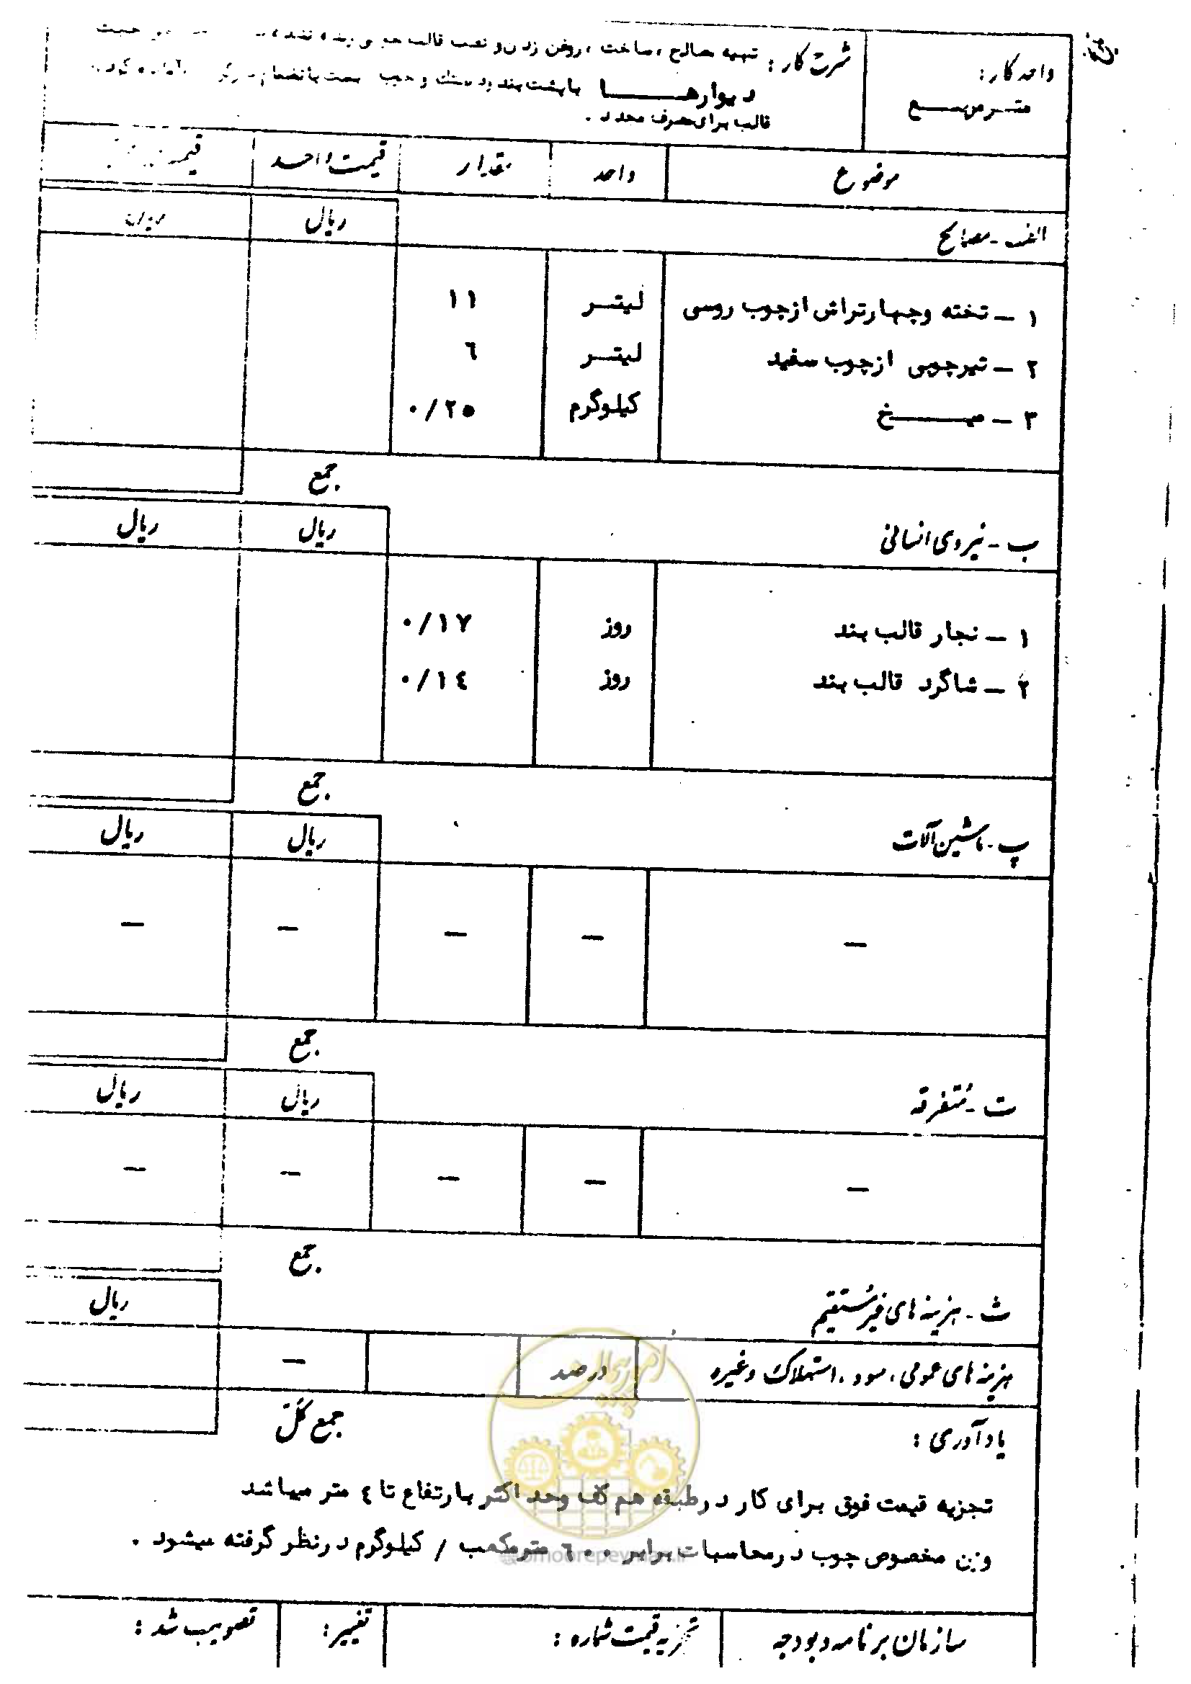 واحد کار :
متر مربع
شرح کار : تهیه مصالح ، ساخت ، روغن زدن و نصب قالب
دیوارها با پشت بند و دستک و چوب بست با انضمام
قالب برای مصرف مجدد .
موضوع واحد مقدار قیمت واحد
الف - مصالح ریال ریال
۱ - تخته وچهارتراش ازچوب روسی لیتر ۱۱
۲ - تیرچوبی ازچوب سفید لیتر ٦
۳ - میخ کیلوگرم ۰/۲۵
جمع
ب - نیروی انسانی ریال ریال
۱ - نجار قالب بند روز ۰/۱۷
۲ - شاگرد قالب بند روز ۰/۱٤
جمع
پ - ماشین آلات ریال ریال
— — — — —
جمع
ت - متفرقه ریال ریال
— — — — —
جمع
ث - هزینه های غیرمستقیم ریال
هزینه های عمومی ، سود ، استهلاک وغیره درصد —
جمع کل
یادآوری :
تجزیه قیمت فوق برای کار درطبقه هم کف وحداکثر بارتفاع تا ٤ متر میباشد
وزن مخصوص چوب درمحاسبات برابر ٦۰۰ مترمکعب / کیلوگرم درنظر گرفته میشود .
سازمان برنامه و بودجه تجزیه قیمت شماره : تغییر : تصویب شد :
امور پیمان
@omoorepeyman.ir